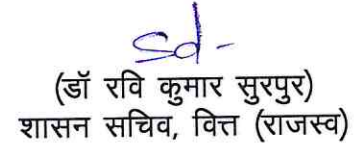 Sd-
(डॉ रवि कुमार सुरपुर)
शासन सचिव, वित्त (राजस्व)